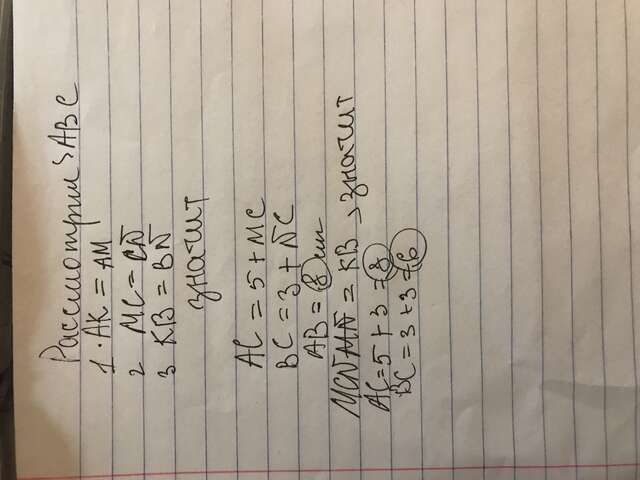 Рассмотрим > ABC
1. AK = AM
2 MC = CN
3 KB = BN
значит
AC = 5 + MC
BC = 3 + NC
AB = 8 см
MCN MN = KB > значит
AC = 5 + 3 = 8
BC = 3 + 3 = 6